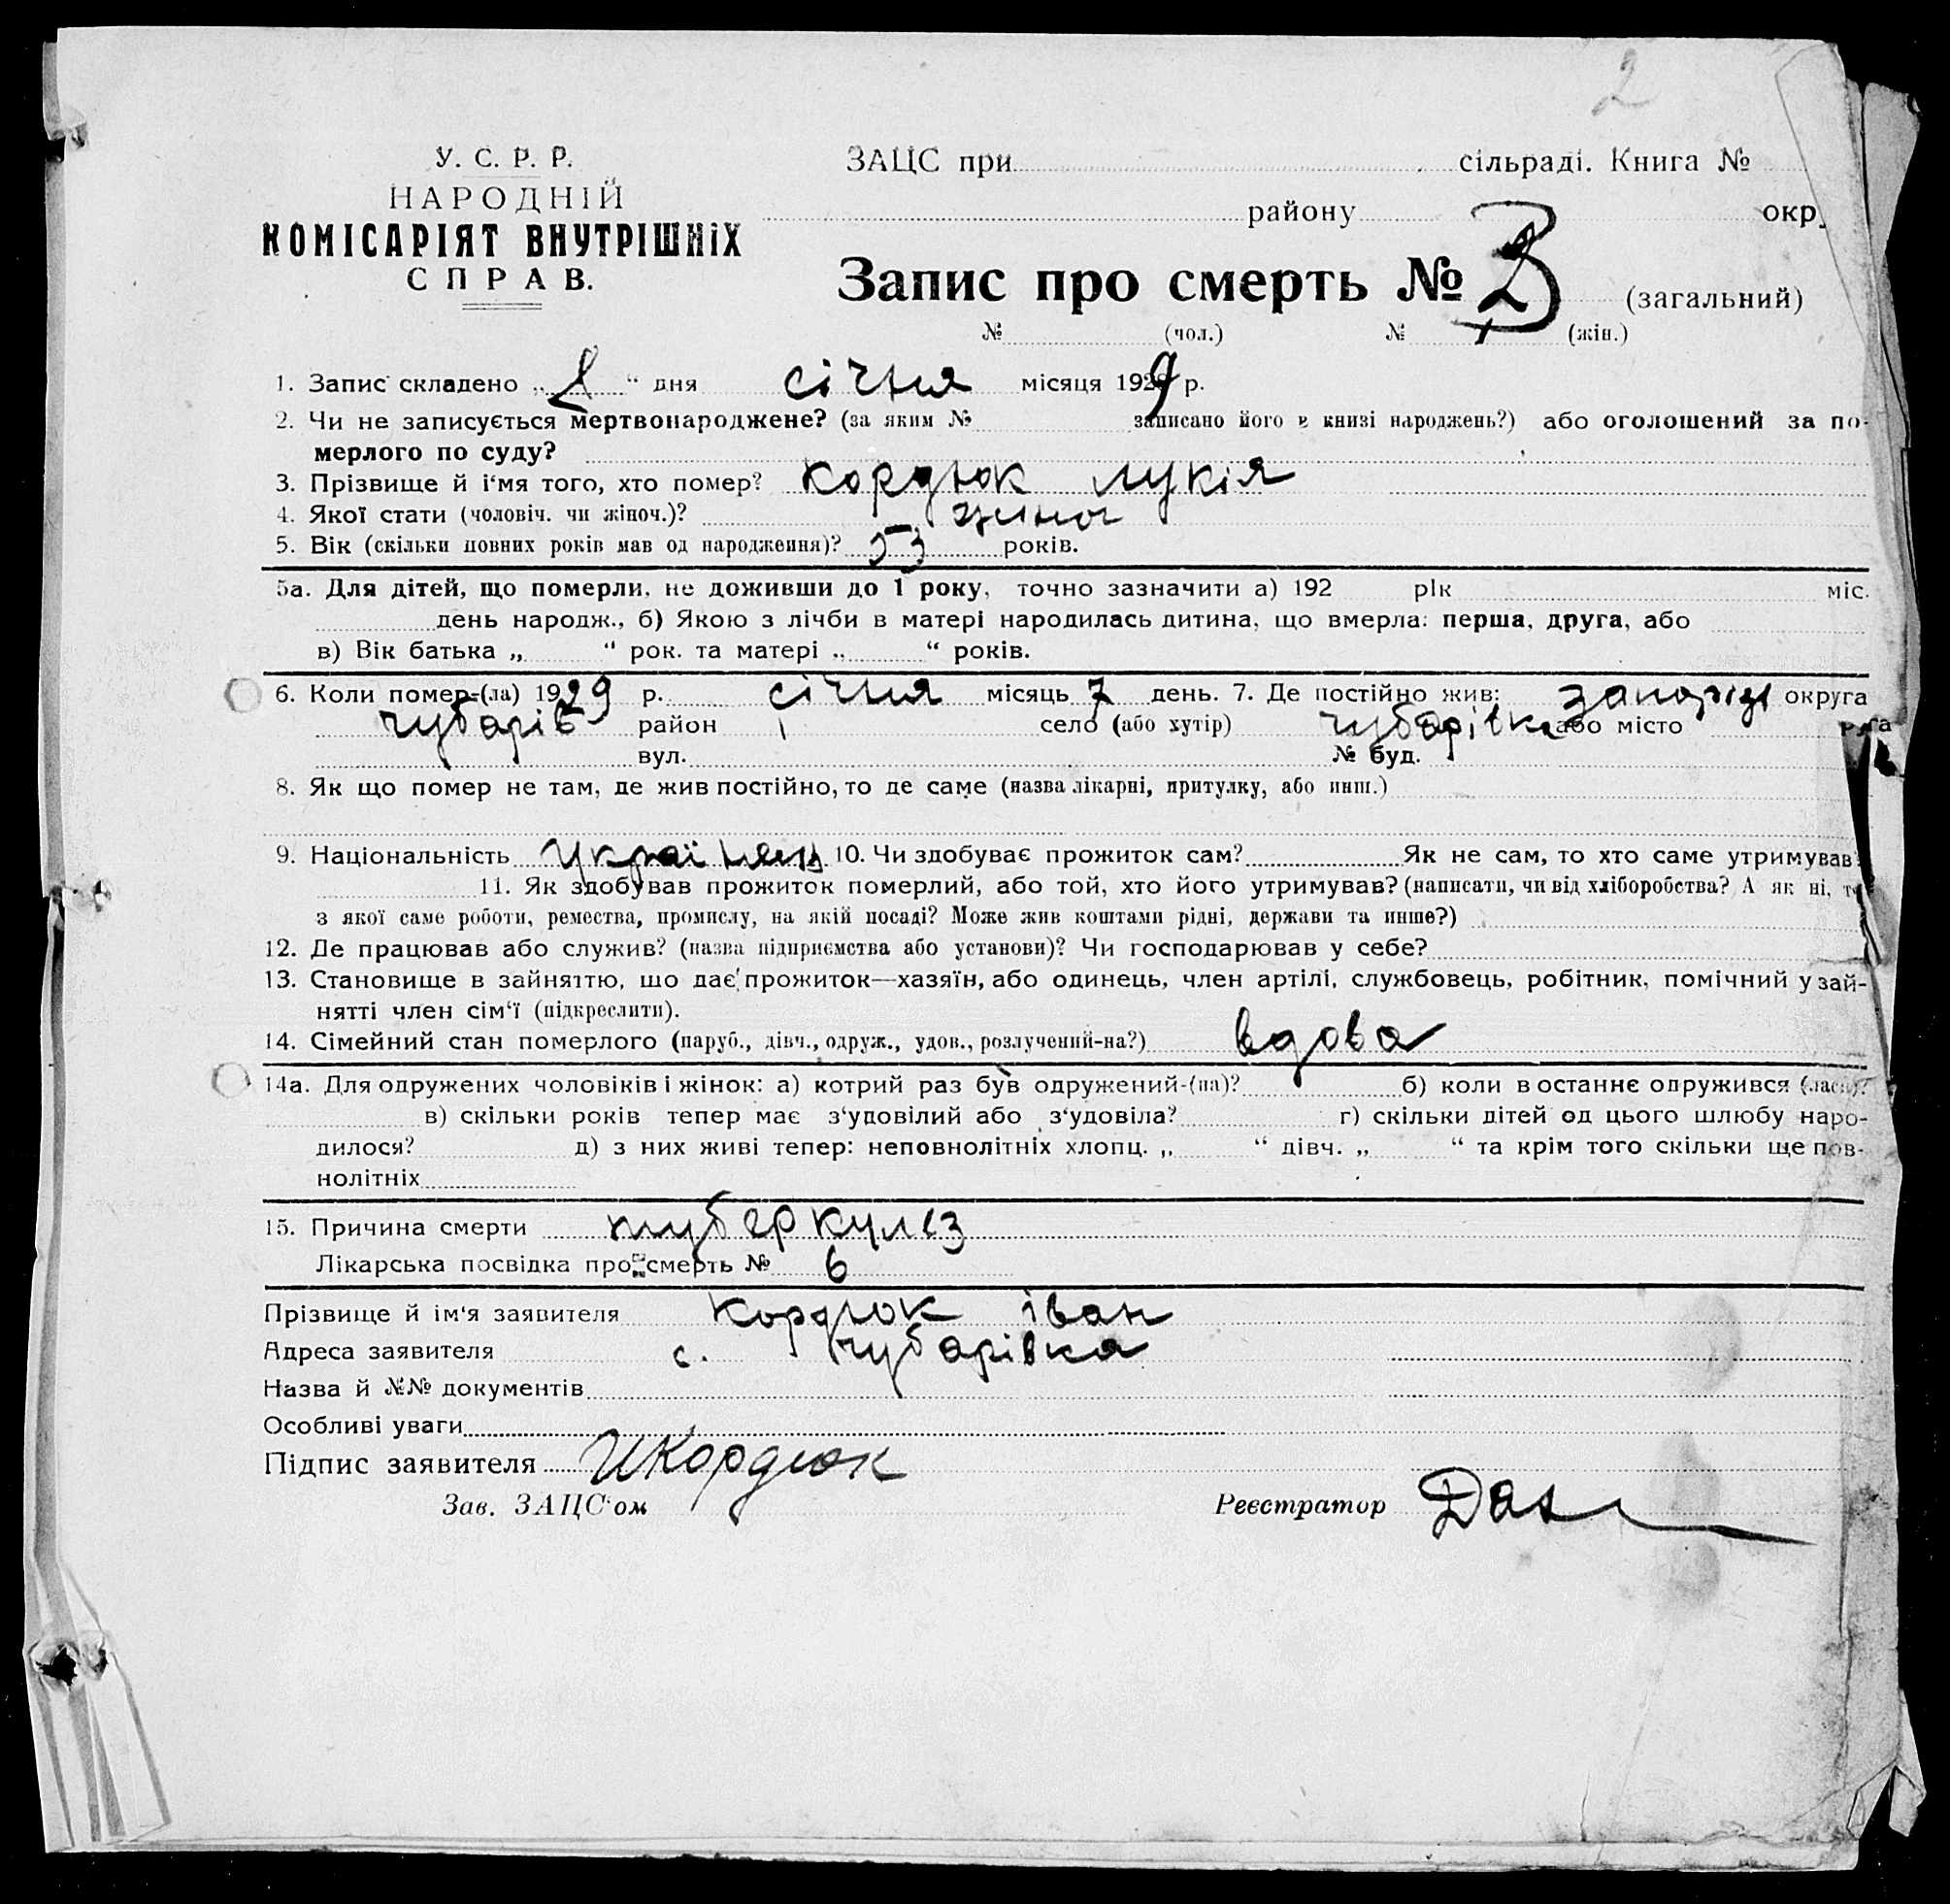 2
У. С. Р. Р.
НАРОДНІЙ
КОМІСАРІЯТ ВНУТРІШНІХ
СПРАВ.
ЗАЦС при сільраді. Книга №
району окр
Запис про смерть № (загальний)
№ (чол.) № (жін.)
1. Запис складено „ 8 “ дня січня місяця 1929 р.
2. Чи не записується мертвонароджене? (за яким № записано його в книзі народжень?) або оголошений за по-
мерлого по суду?
3. Прізвище й і‘мя того, хто помер? Кордюк Лукія
4. Якої стати (чоловіч. чи жіноч.)? жіноч
5. Вік (скільки повних років мав од народження)? 53 років.
5а. Для дітей, що померли, не доживши до 1 року, точно зазначити а) 192 рік міс.
день народж., б) Якою з лічби в матері народилась дитина, що вмерла: перша, друга, або
в) Вік батька „ “ рок. та матері „ “ років.
6. Коли помер-(ла) 1929 р. січня місяць 7 день. 7. Де постійно жив: Запоріз округа
Чубарів район село (або хутір) Чубарівка або місто
вул. № буд.
8. Як що помер не там, де жив постійно, то де саме (назва лікарні, притулку, або инш.)
9. Національність Українец 10. Чи здобуває прожиток сам? Як не сам, то хто саме утримував?
11. Як здобував прожиток померлий, або той, хто його утримував? (написати, чи від хліборобства? А як ні, то
з якої саме роботи, ремества, промислу, на якій посаді? Може жив коштами рідні, держави та инше?)
12. Де працював або служив? (назва підприємства або установи)? Чи господарював у себе?
13. Становище в зайняттю, що дає прожиток—хазяїн, або одинець, член артілі, службовець, робітник, помічний у зай-
нятті член сім‘ї (підкреслити).
14. Сімейний стан померлого (паруб., дівч., одруж., удов., розлучений-на?) вдова
14а. Для одружених чоловіків і жінок: а) котрий раз був одружений-(на)? б) коли востаннє одружився (лася)?
в) скільки років тепер має з‘удовілий або з‘удовіла? г) скільки дітей од цього шлюбу наро-
дилося? д) з них живі тепер: неповнолітніх хлопц. „ “ дівч. „ “ та крім того скільки ще пов-
нолітніх
15. Причина смерти туберкульоз
Лікарська посвідка про смерть № 6
Прізвище й ім‘я заявителя Кордюк Іван
Адреса заявителя с. Чубарівка
Назва й №№ документів
Особливі уваги
Підпис заявителя ИКордюк
Зав. ЗАЦС‘ом Реєстратор